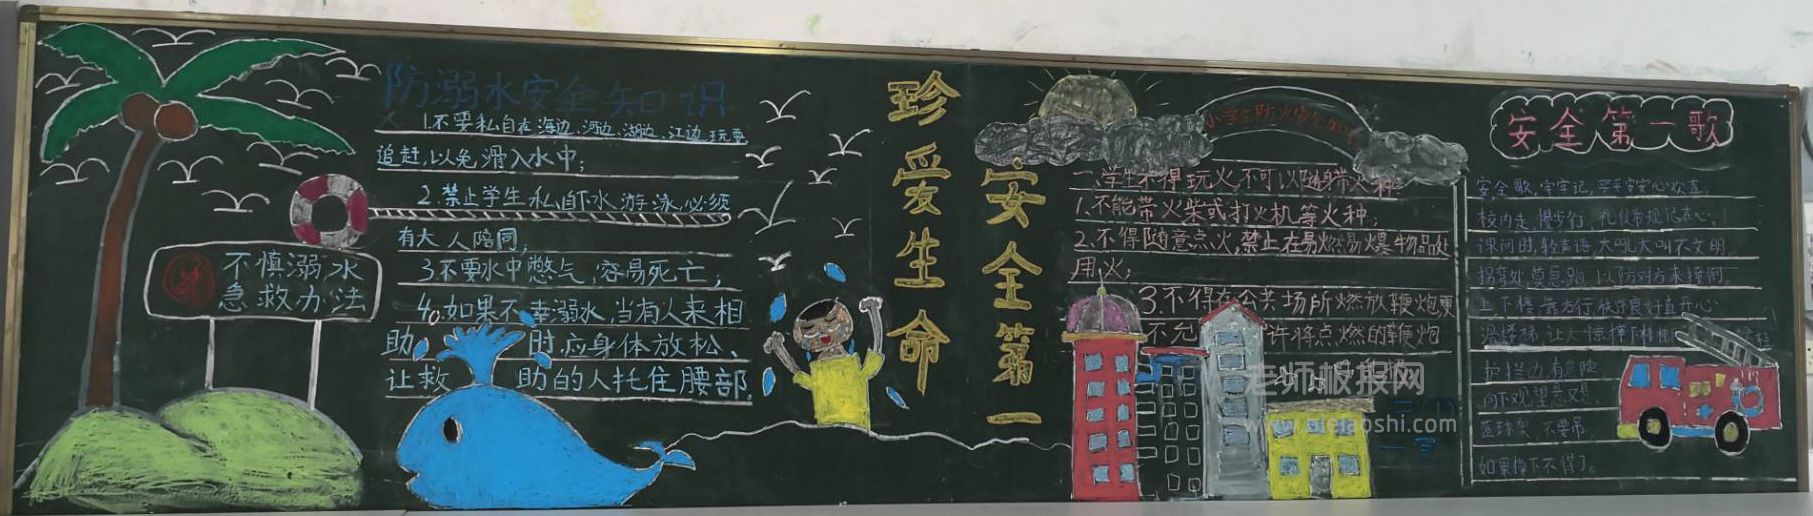 防溺水安全知识
1.不要私自在海边、河边、湖边、江边玩耍
追赶,以免滑入水中;
2.禁止学生私自下水游泳,必须
有大人陪同;
3不要水中憋气,容易死亡;
4.如果不幸溺水,当有人来相
助 时,应身体放松、
让救 助的人托住腰部。
不慎溺水
急救办法
珍爱生命
安全第一
小学生防火安全知识
一、学生不得玩火,不可以随身带火种
1、不能带火柴或打火机等火种;
2、不得随意点火,禁止在易燃易爆物品处
用火;
3、不得在公共场所燃放鞭炮更
不允 许将点燃的鞭炮
老师板报网
安全第一歌
安全歌,牢牢记,平平安安心欢喜。
校内走,慢步行,礼仪常规记在心;
课间时,轻声语,大吼大叫不文明。
拐弯处莫急跑,以防对方来撞倒
上下楼,靠右行,秩序良好真开心
护栏边,有危险
向下观望
篮球架,不要吊,
如果摔下不得了。